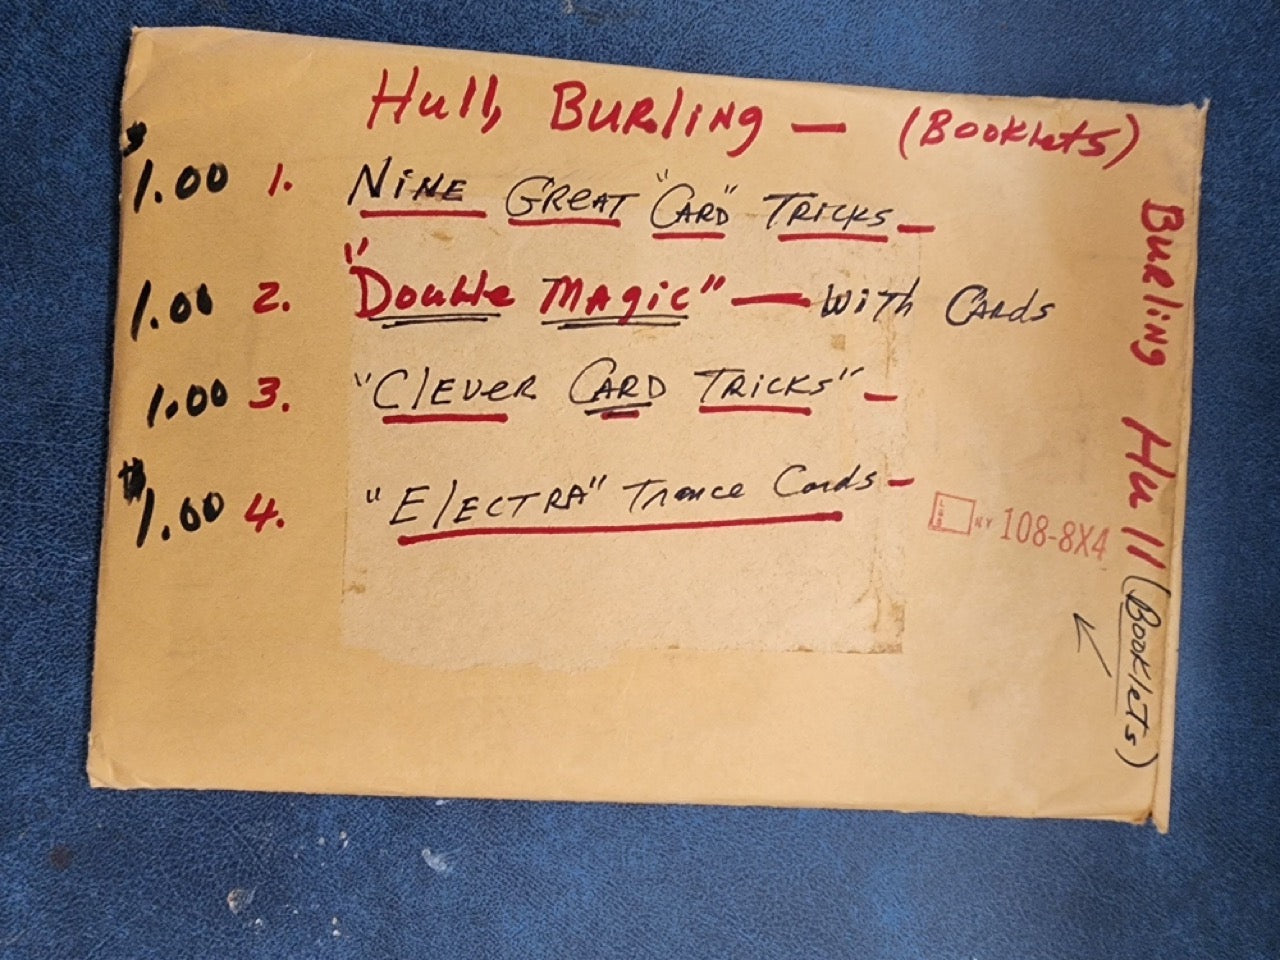 Hull, Burling — (Booklets)
$1.00 1. Nine Great "Card" Tricks —
1.00 2. "Double Magic" — With Cards
1.00 3. "Clever Card Tricks" —
$1.00 4. "Electra" Trance Cards —
NY 108-8X4
Burling Hull (Booklets)